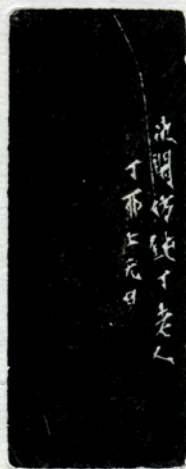 次閑仿鈍丁老人
丁酉上元日